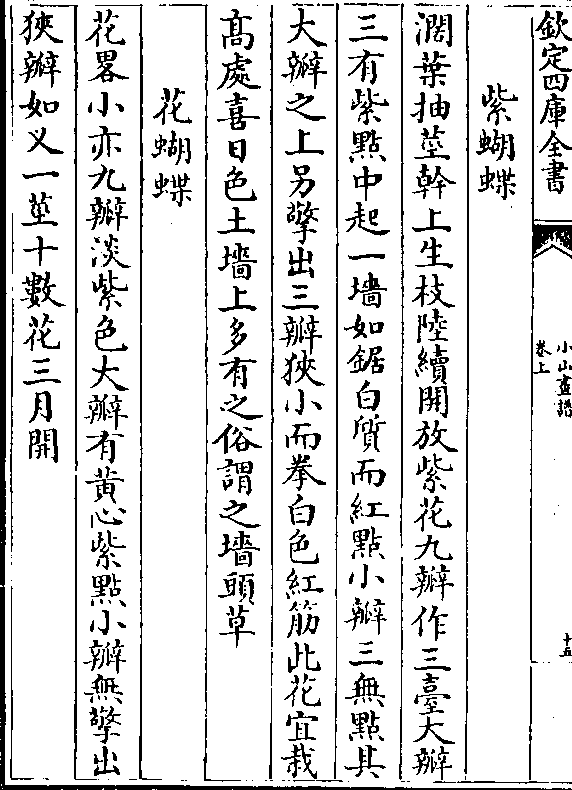 欽定四庫全書
小山畫譜
卷上
十五
紫蝴蝶
濶葉抽莖幹上生枝陸續開放紫花九瓣作三臺大瓣
三有紫點中起一墻如鋸白質而紅點小瓣三無點其
大瓣之上另擎出三瓣狹小而拳白色紅筋此花宜栽
髙處喜日色土墻上多有之俗謂之墻頭草
花蝴蝶
花畧小亦九瓣淡紫色大瓣有黄心紫點小瓣無擎出
狹瓣如义一莖十數花三月開